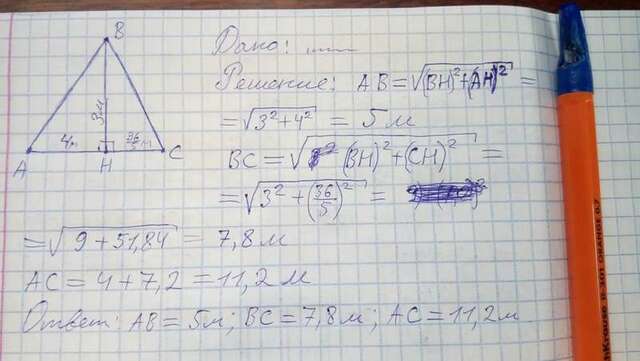 B
3м
4м
36/5 м
A
H
C
Дано: ......
Решение: AB = √(BH)²+(AH)² =
= √3²+4² = 5 м
BC = √(BH)²+(CH)² =
= √3²+(36/5)² =
= √9+51,84 = 7,8 м
AC = 4+7,2 = 11,2 м
Ответ: AB = 5м; BC = 7,8м; AC = 11,2м